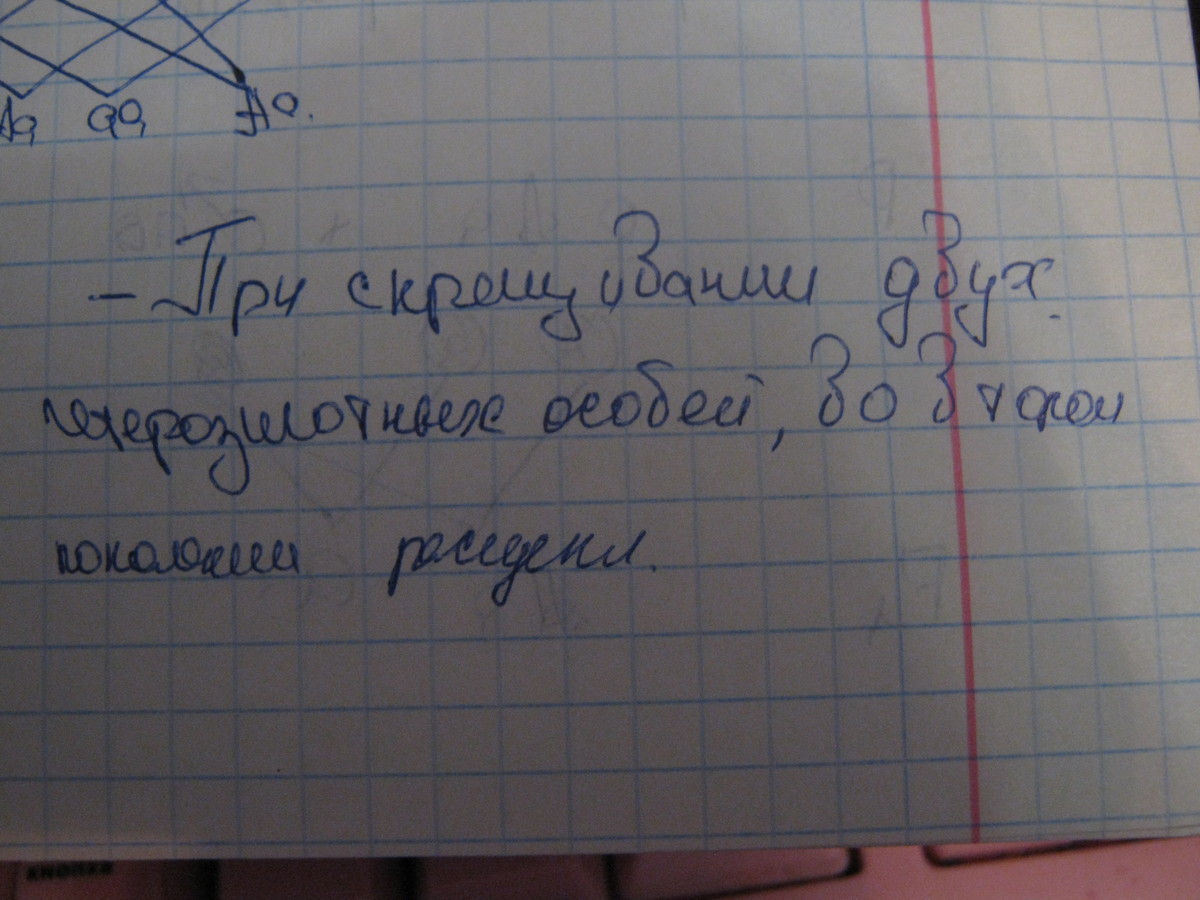 Aa aa Aa.
– При скрещивании двух
гетерозиготных особей, во втором
поколении расщепл.
кнопка